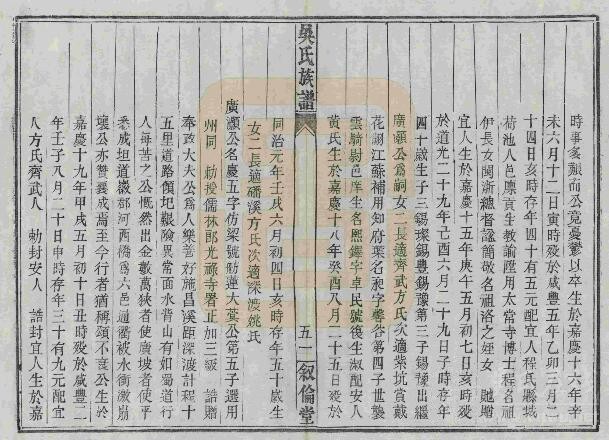 時事多艱而公竟憂鬱以卒生於嘉慶十六年辛
未六月十二日寅時歿於咸豐五年乙卯三月二
十四日亥時存年四十有五元配宜人程氏縣城
荷池人邑廩貢生教諭陞用太常寺博士程名祖
伊長女閩浙總督諡簡敬名祖洛之姪女 貤贈
宜人生於嘉慶十五年庚午五月初七日亥時歿
於道光二十九年己酉六月二十九日子時存年
四十歲生子三錫璨錫豐錫豫第三子錫豫出繼
廣顯公爲嗣女二長適齊武方氏次適紫坑賁戴
花翎江蘇補用知府葉名昶字馨谷第四子世襲
雲騎尉邑庠生名熙鏗字卓民號復生淑配安人
黃氏生於嘉慶十八年癸酉八月二十五日歿於
吳氏族譜
五一 敘倫堂
同治元年壬戌六月初四日亥時存年五十歲生
女二長適磻溪方氏次適深渡姚氏
廣灝公名慶五字仿梁號舫蓮大葵公第五子選用
州同 勅授儒林郎光祿寺署正加三級 誥贈
奉政大夫公爲人樂善好施昌溪距深渡計程十
五里道路傾圮艱險異常面水背山有如蜀道行
人每苦之公慨然出金數萬狹者使廣坡者使平
悉成坦道徽郡河西橋爲六邑通衢被水衝激崩
壞公亦贊襄成焉至今行者猶稱頌不衰公生於
嘉慶十九年甲戌五月初十日丑時歿於咸豐二
年壬子八月二十日申時存年三十有九元配宜
人方氏齊武人 勅封安人 誥封宜人生於嘉